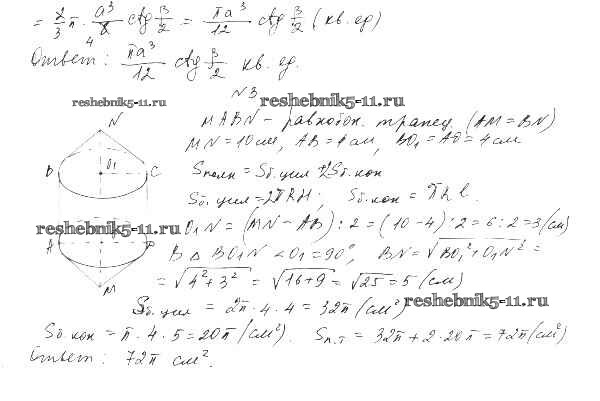 = 2/3 π · a³/8 ctg β/2 = πa³/12 ctg β/2 (кв. ед)
Ответ: πa³/12 ctg β/2 кв. ед.
N3
reshebnik5-11.ru reshebnik5-11.ru
N MABN – равнобок. трапец. (AM = BN)
MN = 10 см, AB = 4 см, BO₁ = AO = 4 см
B O₁ C Sполн = Sб. цил + 2Sб. кон
Sб. цил = 2πRH; Sб. кон = πRl.
reshebnik5-11.ru O₁N = (MN – AB) : 2 = (10 – 4) : 2 = 6 : 2 = 3 (см)
A В Δ BO₁N ∠O₁ = 90°, BN = √BO₁² + O₁N² =
M = √4² + 3² = √16 + 9 = √25 = 5 (см)
Sб. цил = 2π · 4 · 4 = 32π (см²) reshebnik5-11.ru
Sб. кон = π · 4 · 5 = 20π (см²). Sп.т = 32π + 2 · 20π = 72π (см²)
Ответ: 72π см².